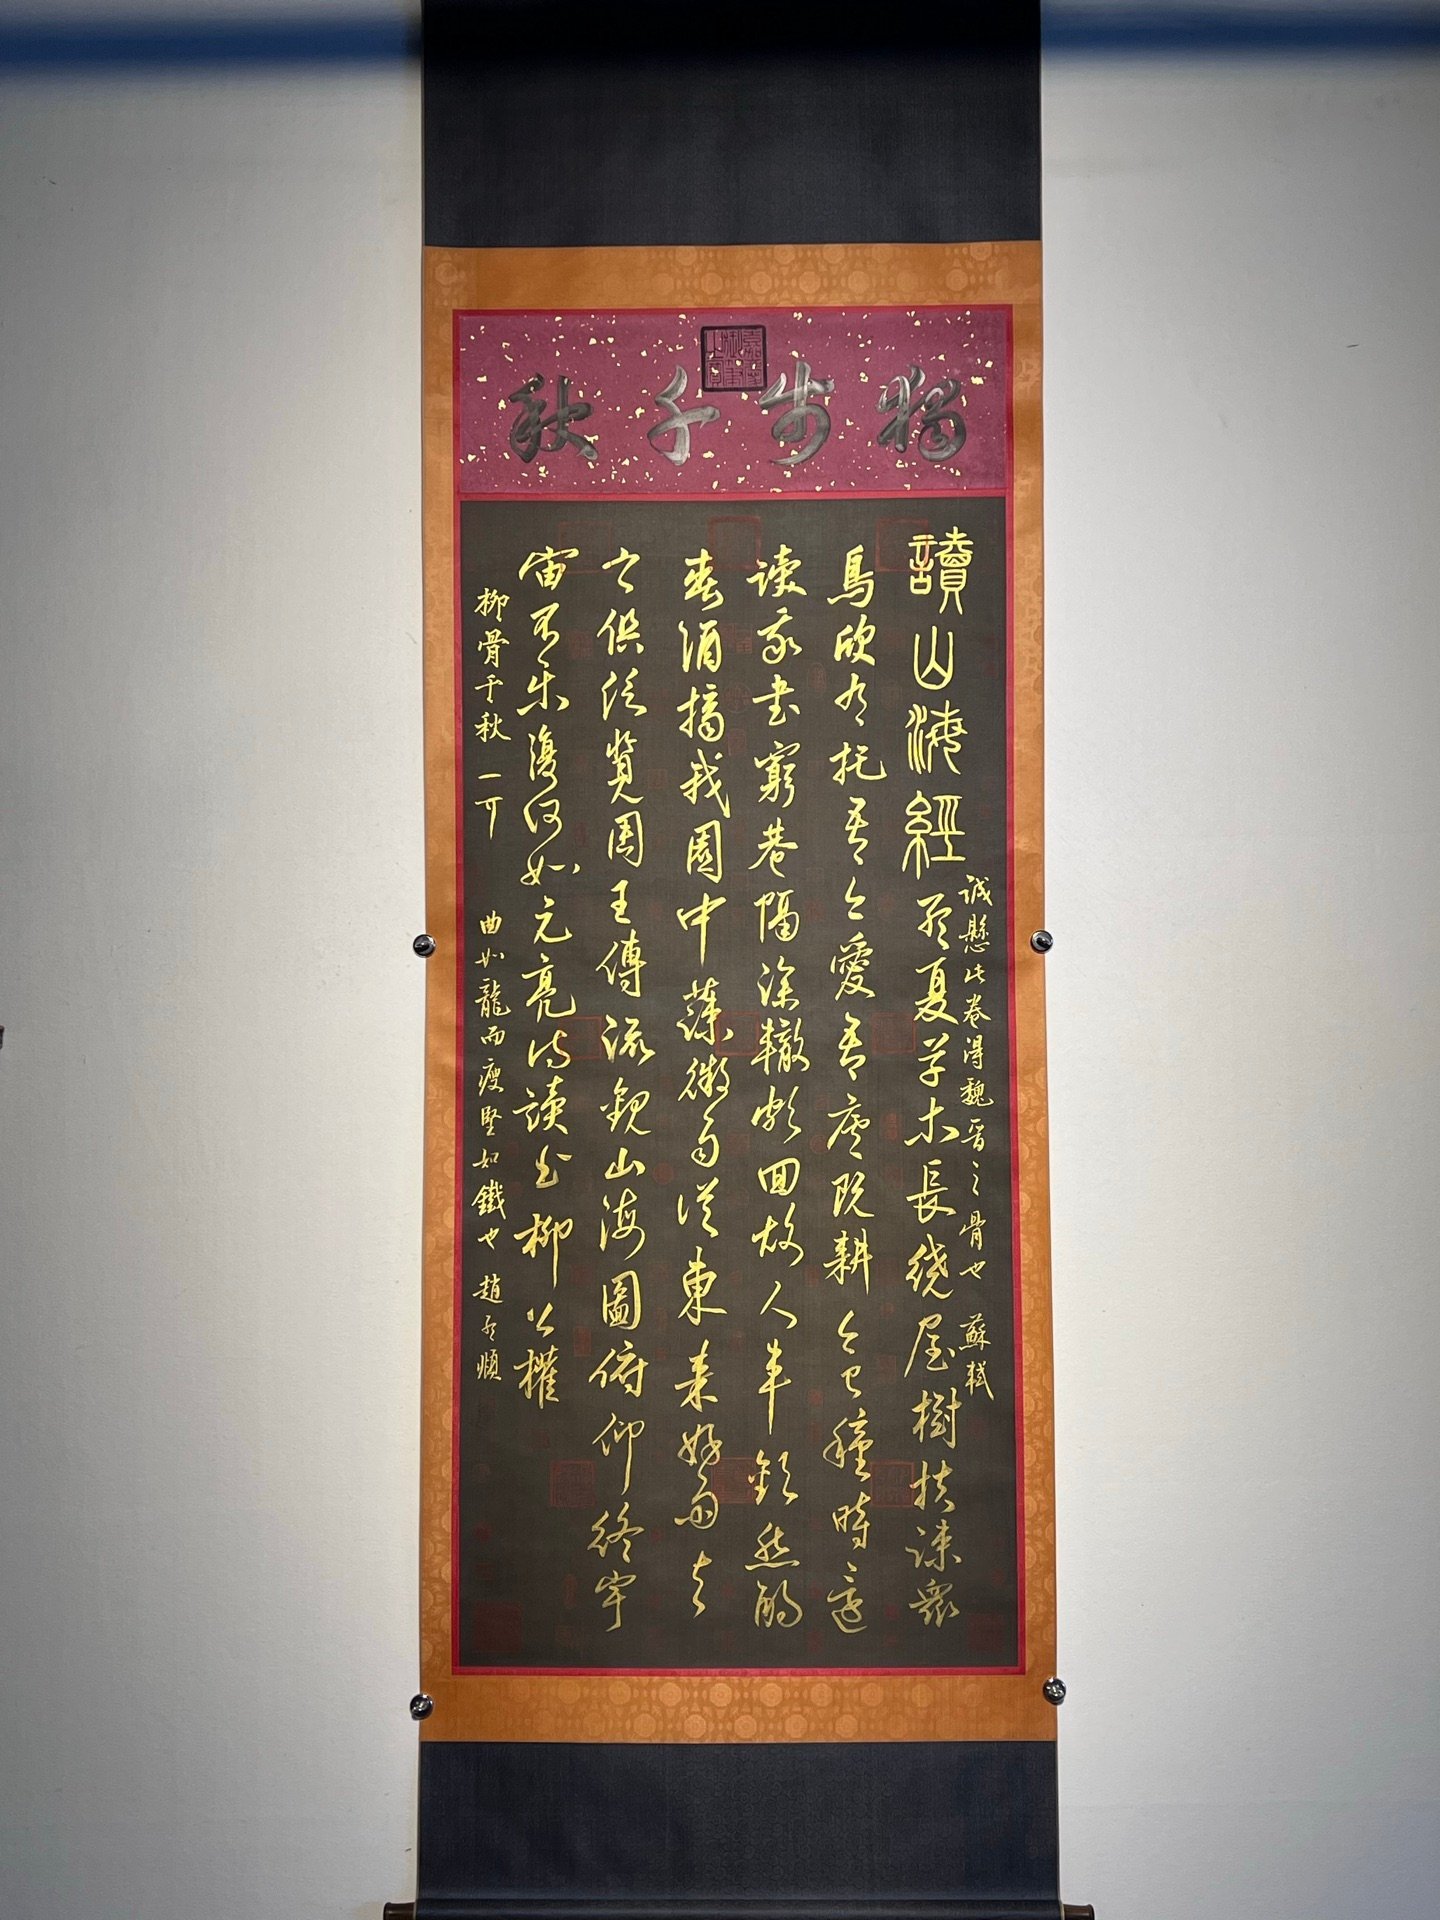 獨步千秋
嘉慶御覽之寶
誠懸此卷得魏晉之骨也 蘇軾
讀山海經 孟夏草木長繞屋樹扶踈衆
鳥欣有托吾亦愛吾廬既耕亦已種時還
读我書窮巷隔深轍頗回故人車歡然酌
春酒摘我園中蔬微雨從東來好風與
之俱泛覽周王傳流觀山海圖俯仰終宇
宙不樂復何如元亮詩讀书柳公權
柳骨千秋 曲如龍而瘦堅如鐵也 趙孟頫